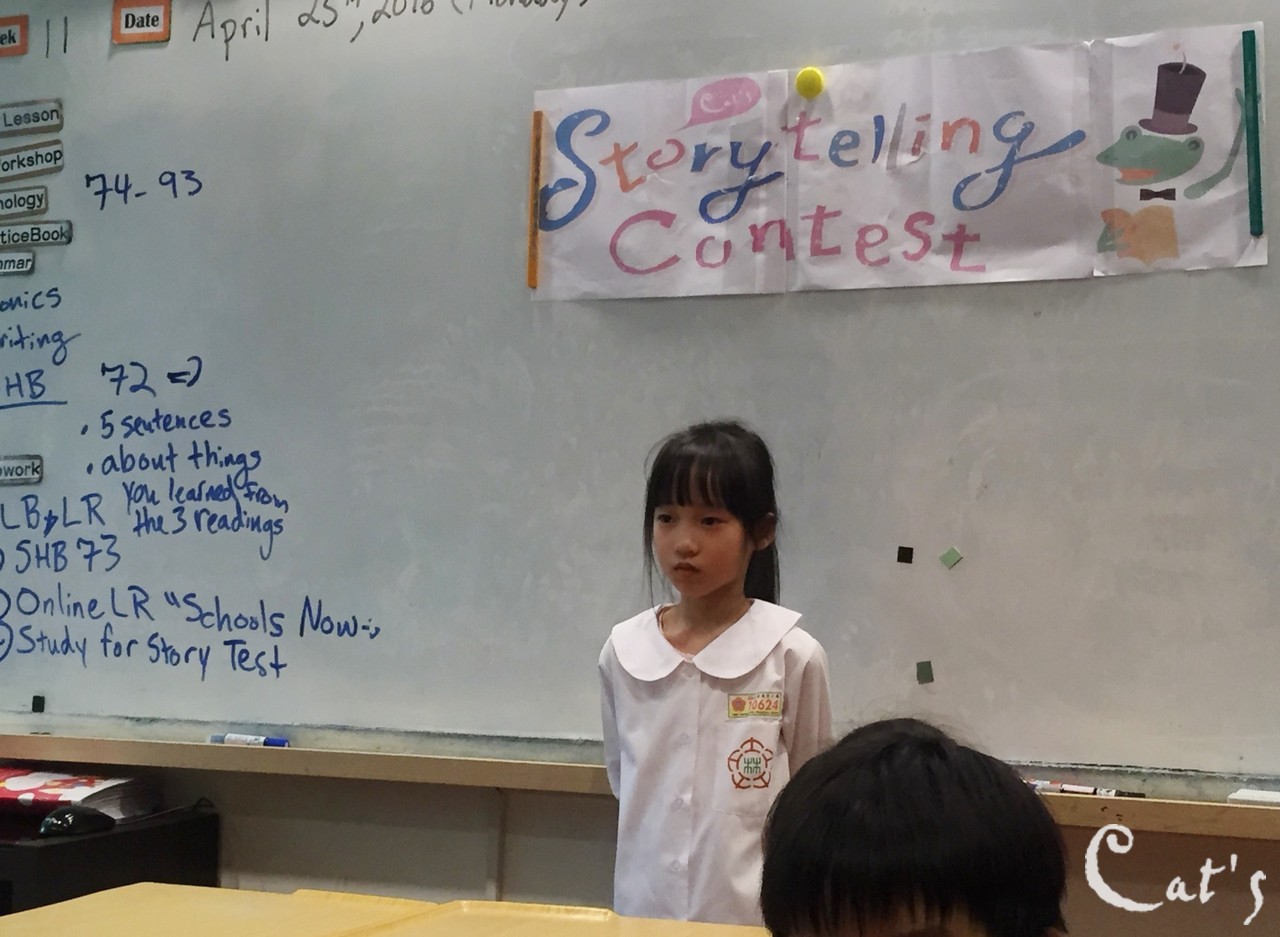 ek 11
Date April 25th, 2016 (Monday)
Lesson
orkshop
nology
74-93
cticeBook
mmar
onics
riting
HB 72 =>
• 5 sentences
• about things
you learned from
the 3 readings
work
LB, LR
SHB 73
Online LR "Schools Now"
Study for Story Test
Cat's
Storytelling
Contest
10624
Cat's